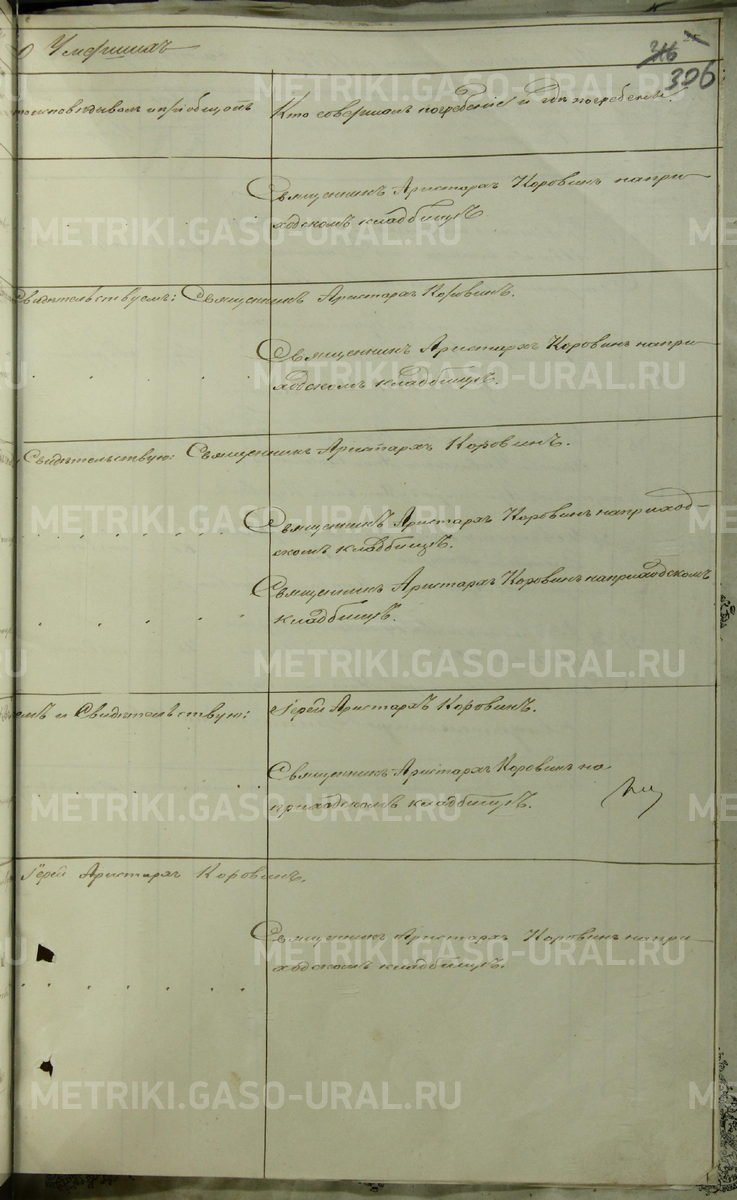 О Умершихъ
306
то исповѣдывалъ и пріобщалъ
Кто совершалъ погребеніе и гдѣ погребены.
Священникъ Аристархъ Коровинъ на при-
ходскомъ кладбищѣ
Свидѣтельствуемъ: Священникъ Аристархъ Коровинъ.
Священникъ Аристархъ Коровинъ на при-
ходскомъ кладбищѣ.
Свидѣтельствую: Священникъ Аристархъ Коровинъ.
Священникъ Аристархъ Коровинъ на приход-
скомъ кладбищѣ.
Священникъ Аристархъ Коровинъ на приходскомъ
кладбищѣ.
емъ и Свидѣтельствую: Іерей Аристархъ Коровинъ.
Священникъ Аристархъ Коровинъ на
приходскомъ кладбищѣ.
Іерей Аристархъ Коровинъ.
Священникъ Аристархъ Коровинъ на при-
ходскомъ кладбищѣ.
METRIKI.GASO-URAL.RU